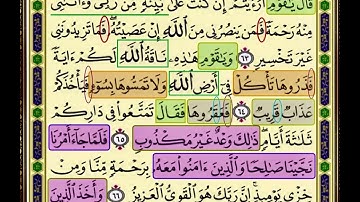 قَالَ يَٰقَوْمِ أَرَءَيْتُمْ إِن كُنتُ عَلَىٰ بَيِّنَةٍ مِّن رَّبِّى وَءَاتَىٰنِى
مِنْهُ رَحْمَةً فَمَن يَنصُرُنِى مِنَ ٱللَّهِ إِنْ عَصَيْتُهُۥ فَمَا تَزِيدُونَنِى
غَيْرَ تَخْسِيرٍ ٦٣ وَيَٰقَوْمِ هَٰذِهِۦ نَاقَةُ ٱللَّهِ لَكُمْ ءَايَةً
فَذَرُوهَا تَأْكُلْ فِىٓ أَرْضِ ٱللَّهِ وَلَا تَمَسُّوهَا بِسُوٓءٍ فَيَأْخُذَكُمْ
عَذَابٌ قَرِيبٌ ٦٤ فَعَقَرُوهَا فَقَالَ تَمَتَّعُوا۟ فِى دَارِكُمْ
ثَلَٰثَةَ أَيَّامٍ ذَٰلِكَ وَعْدٌ غَيْرُ مَكْذُوبٍ ٦٥ فَلَمَّا جَآءَ أَمْرُنَا
نَجَّيْنَا صَٰلِحًا وَٱلَّذِينَ ءَامَنُوا۟ مَعَهُۥ بِرَحْمَةٍ مِّنَّا وَمِنْ
خِزْىِ يَوْمِئِذٍ إِنَّ رَبَّكَ هُوَ ٱلْقَوِىُّ ٱلْعَزِيزُ ٦٦ وَأَخَذَ ٱلَّذِينَ